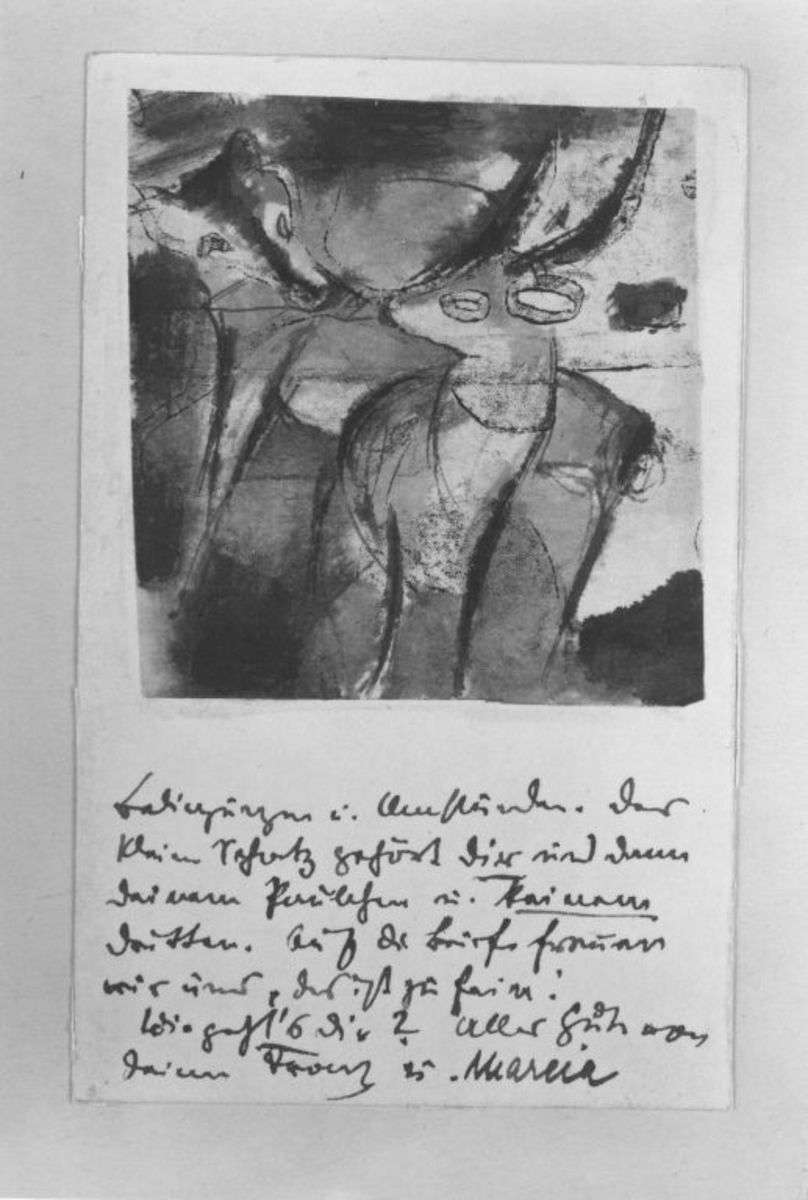 Bedingungen u. Umständen. Der
kleine Schatz gehört dir und dann
deinem Paulchen u. keinem
dritten. Auf die Briefe freuen
wir uns, das ist zu fein!
Wie geht's dir? Alles Gute von
deinen Franz u. Mareia